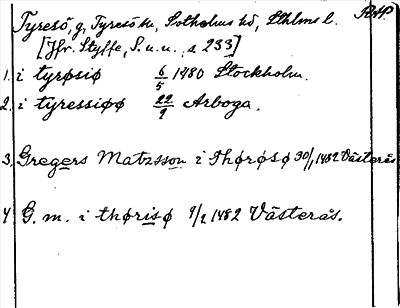 Tyresö, g, Tyresö sn, Sotholms hd, Sthlms l. RAP.
[Jfr. Styffe, S.u.u., s 233]
1. i tyrøsiø 6/5 1480 Stockholm.
2. i tyressiøø 22/9 Arboga.
3. Gregers Matzsson i Thørøsø 30/1 1482 Västerås
4. G. m. i thørisø 9/2 1482 Västerås.